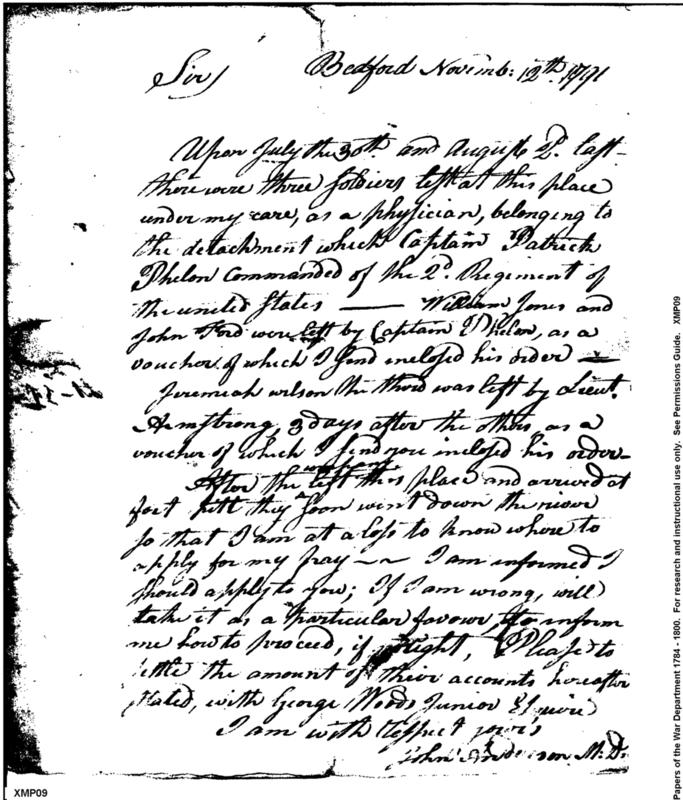 Sir/ Bedford Novemb: 12th. 1791
Upon July the 30th. and Augusts 2d. last
there were three soldiers left at this place
under my care, as a physician, belonging to
the detachment which Captain Patrick
Phelon commanded of the 2d. Regiment of
the united states — William Jones and
John Ford were left by Captain Phelon, as a
voucher of which I send inclosed his order —
Jeremiah wilson the third was left by Lieut.
Armstrong, 3 days after the others, as a
voucher of which I send you inclosed his order—
After the left this place and arrived at
fort pitt they soon went down the river
so that I am at a loss to know where to
apply for my pay — I am informed I
should apply to you; If I am wrong, will
take it as a particular favour to inform
me how to proceed, if Right, Please to
settle the amount of their accounts hereafter
stated, with George Woods Junior Esquire
I am with Respect yours
John Anderson M.D.
XMP09
Papers of the War Department 1784 - 1800. For research and instructional use only. See Permissions Guide. XMP09